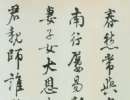 春愁常與
南行屢易
妻子女大恩
君親師誰